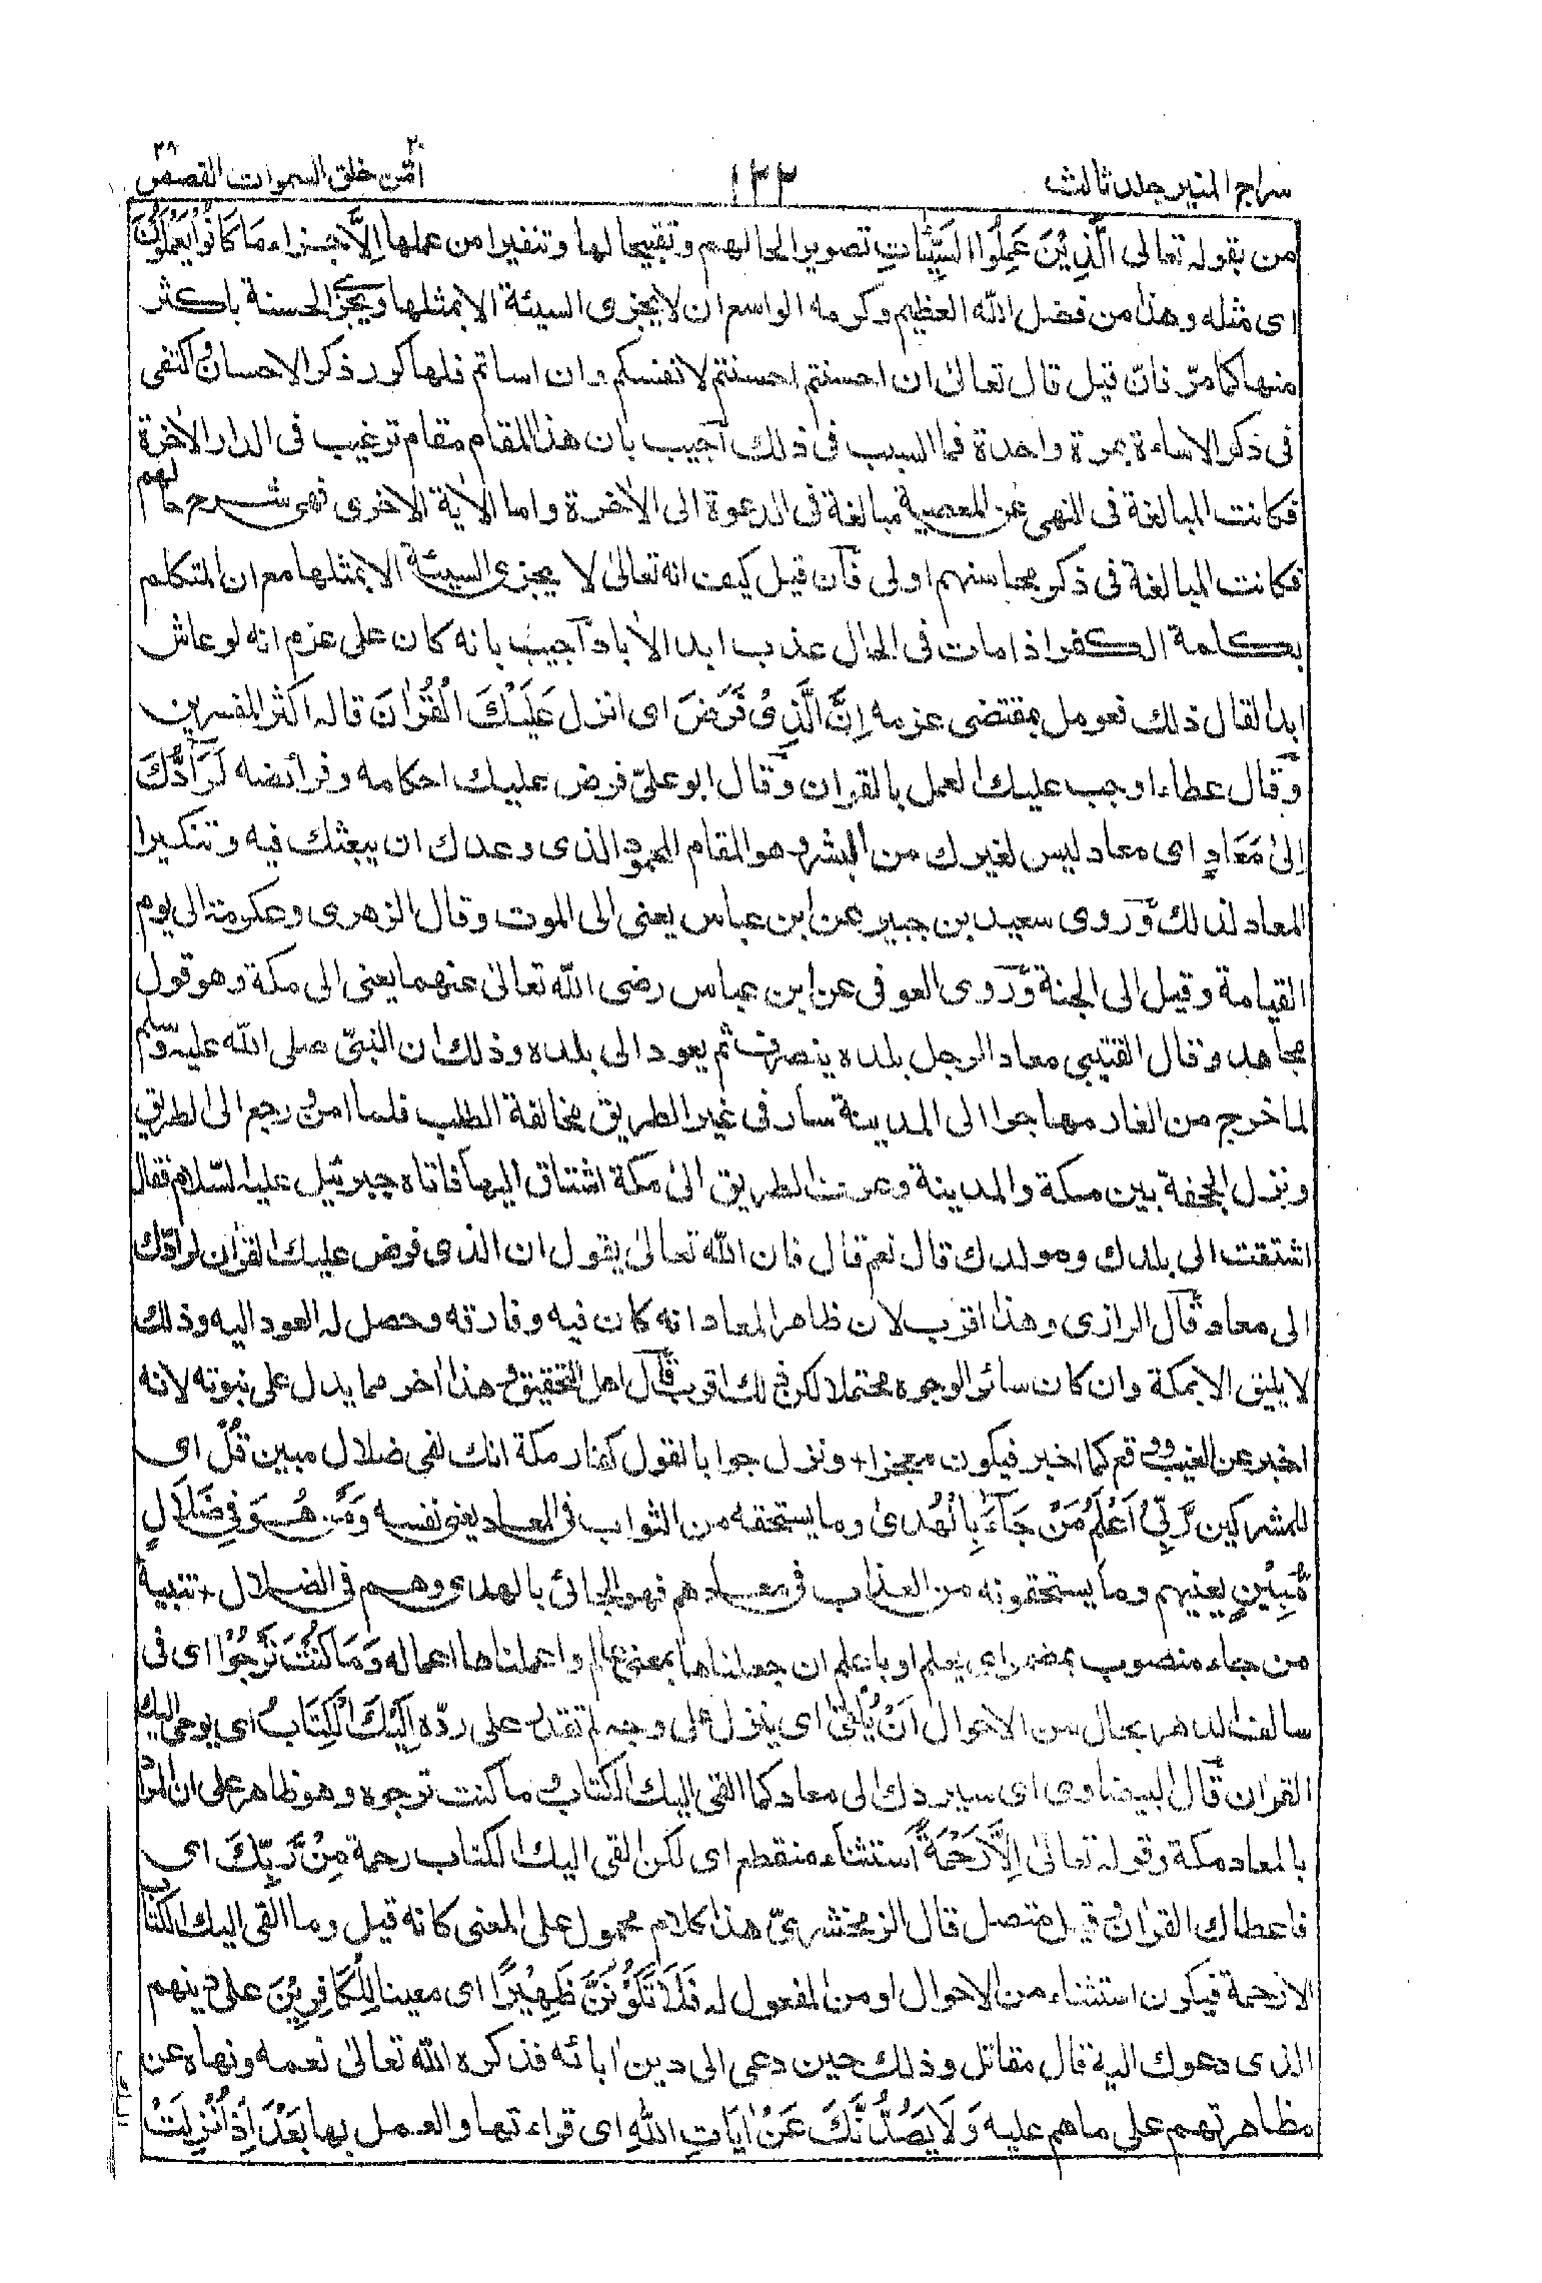 سراج المنير جلد ثالث
١٢٢
٢٠ امّن خلق السموات القصص ٢٨
من بقوله تعالى الَّذِيْنَ عَمِلُوا السَّيِّئَاتِ تصويرا لحالهم وتقبيحا لها وتنفيرا من عملها اِلَّا جزاء مَا كَانُوْا يَعْمَلُوْنَ
اى مثله وهذا من فضل الله العظيم وكرمه الواسع ان لا يجزى السيئة الا بمثلها ويجزى الحسنة باكثر
منها كما مرّ فان قيل قال تعالى ان احسنتم احسنتم لانفسكم وان اساتم فلها كرر ذكر الاحسان واكتفى
فى ذكر الاساءة بمرة واحدة فما السبب فى ذلك اجيب بان هذا المقام مقام ترغيب فى الدار الاٰخرة
فكانت المبالغة فى النهى عن المعصية مبالغة فى الدعوة الى الاٰخرة واما الاٰية الاخرى فهى شرح حالهم
فكانت المبالغة فى ذكر محاسنهم اولى فان قيل كيف انه تعالىٰ لا يجزى السيئة الا بمثلها مع ان المتكلم
بكلمة الكفر اذا مات فى الحال عذب ابد الاٰباد اجيب بانه كان على عزم انه لو عاش
ابدا لقال ذلك فعومل بمقتضى عزمه اِنَّ الَّذِىْ فَرَضَ اى انزل عَلَيْكَ الْقُرْاٰنَ قاله اكثر المفسرين
وقال عطاء اوجب عليك العمل بالقران وقال ابو علىّ فرض عليك احكامه وفرائضه لَرَآدُّكَ
اِلىٰ مَعَادٍ اى معاد ليس لغيرك من البشر وهو المقام المحمود الذى وعدك ان يبعثك فيه وتنكير
المعاد لذلك وروى سعيد بن جبير عن ابن عباس يعنى الى الموت وقال الزهرى وعكرمة الى يوم
القيامة وقيل الى الجنة وروى العوفى عن ابن عباس رضى الله تعالىٰ عنهما يعنى الى مكة وهو قول
مجاهد وقال القتيبى معاد الرجل بلده ينصرف ثم يعود الى بلده وذلك ان النبىّ صلى الله عليه وسلم
لما خرج من الغار مهاجرا الى المدينة سار فى غير الطريق مخالفة الطلب فلما امن ورجع الى الطريق
ونزل الجحفة بين مكة والمدينة وعرف الطريق الىٰ مكة اشتاق اليها فاتاه جبرئيل عليه السّلام فقال
اشتقت الى بلدك ومولدك قال نعم قال فان الله تعالىٰ يقول ان الذى فرض عليك القراٰن لرادّك
الى معاد قال الرازى وهذا اقرب لان ظاهر المعاد انه كان فيه وفارقه وحصل له العود اليه وذلك
لا يليق الا بمكة وان كان سائر الوجوه محتملا لكن ذلك اقرب قال اهل التحقيق وهذا اٰخر مما يدل على نبوته لانه
اخبر عن الغيب ووقع كما اخبر فيكون معجزا + ونزل جوابا لقول كفار مكة انك لفى ضلال مبين قُلْ اى
للمشركين رَّبِّىْ اَعْلَمُ مَنْ جَآءَ بِالْهُدىٰ وما يستحقه من الثواب فى المعاد يعنى نفسه وَمَنْ هُوَ فِىْ ضَلَالٍ
مُّبِيْنٍ يعنيهم وما يستحقونه من العذاب فى معادهم فهو الجائى بالهدى وهم فى الضلال + تنبيه
من جاء منصوب بمضمر اى يعلم او باعلم ان جعلناها بمعنى عالم واعملناها اعماله وَمَا كُنْتَ تَرْجُوْا اى فى
سالف الدهر بحال من الاحوال اَنْ يُّلْقىٰ اى ينزل على وجه لم تقدر على ردّه اِلَيْكَ الْكِتَابُ اى يوحى اليك
القراٰن قال البيضاوى اى سيردك الى معاد كما القى اليك الكتاب وما كنت ترجوه وهو ظاهر على ان المراد
بالمعاد مكة وقوله تعالىٰ اِلَّا رَحْمَةً استثناء منقطع اى لكن القى اليك الكتاب رحمة مِنْ رَّبِّكَ اى
فاعطاك القراٰن وقيل متصل قال الزمخشرىّ هذا كلام محمول على المعنى كانه قيل وما القى اليك الكتاب
الا رحمة فيكون استثناء من الاحوال او من المفعول له فَلَا تَكُوْنَنَّ ظَهِيْرًا اى معينا لِّلْكَافِرِيْنَ على دينهم
الذى دعوك اليه قال مقاتل وذلك حين دعى الى دين اٰبائه فذكره الله تعالىٰ نعمه ونهاه عن
مظاهرتهم على ماهم عليه وَلَا يَصُدُّنَّكَ عَنْ اٰيَاتِ اللّٰهِ اى قراءتها والعمل بها بَعْدَ اِذْ اُنْزِلَتْ